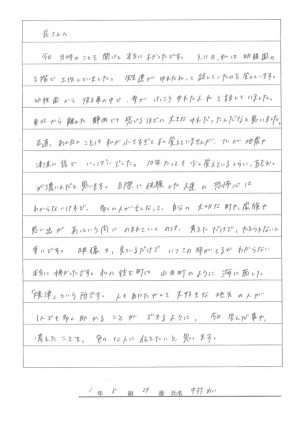 長さんへ
今回 当時のことを聞けて本当によかったです。3.11日、私は幼稚園の
工作していました。 友達が ゆれたねって 話していたのを覚えています。
幼稚園から帰る車の中で、母が けっこうゆれたよねと話していました。
東北から離れた静岡でも 思うほどの 大きなゆれだったんだなと思いました。
正直、あの日のことは 私が小さすぎて よく覚えていませんが、TVが地震や
津波の話で いっぱいでした。 10年たっても 少し覚えているくらい、
が強いんだと思います。 実際に体験した人達の 恐怖心は
わからないけれど、 多くの人が亡くなって、自分の 大切な町や、家族や
思い出が あっという間に のまれていくのは、 考えただけで、たえられない
辛いです。 映像を 見ているだけで いつこの時がくるか わからない
本当に怖かったです。私の住む町は 山田町のように 海に面した
「焼津」という所です。 人もあたたかくて 大好きな 地元の人が
1人でも多く助かる ことが できるように、 今日 学んだ事や、
考えたことを、 色んな人に 伝えたいと 思います。
1年 8組 29番 氏名 中村 めい